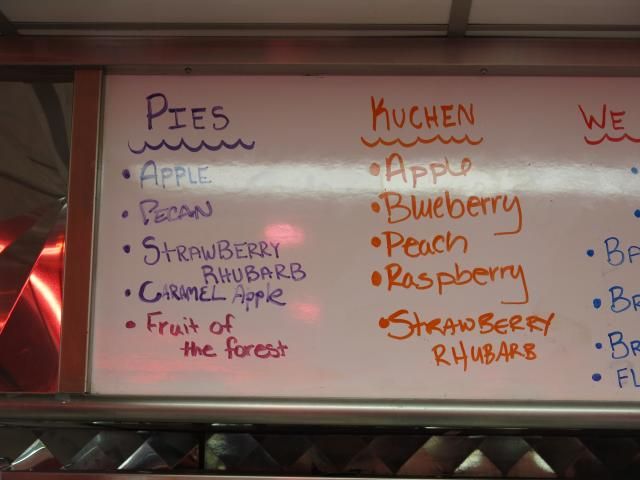 PIES
• APPLE
• PECAN
• STRAWBERRY
RHUBARB
• CARAMEL Apple
• Fruit of
the forest
KUCHEN
• Apple
• Blueberry
• Peach
• Raspberry
• STRAWBERRY
RHUBARB
WE
• BA
• BR
• BR
• FL